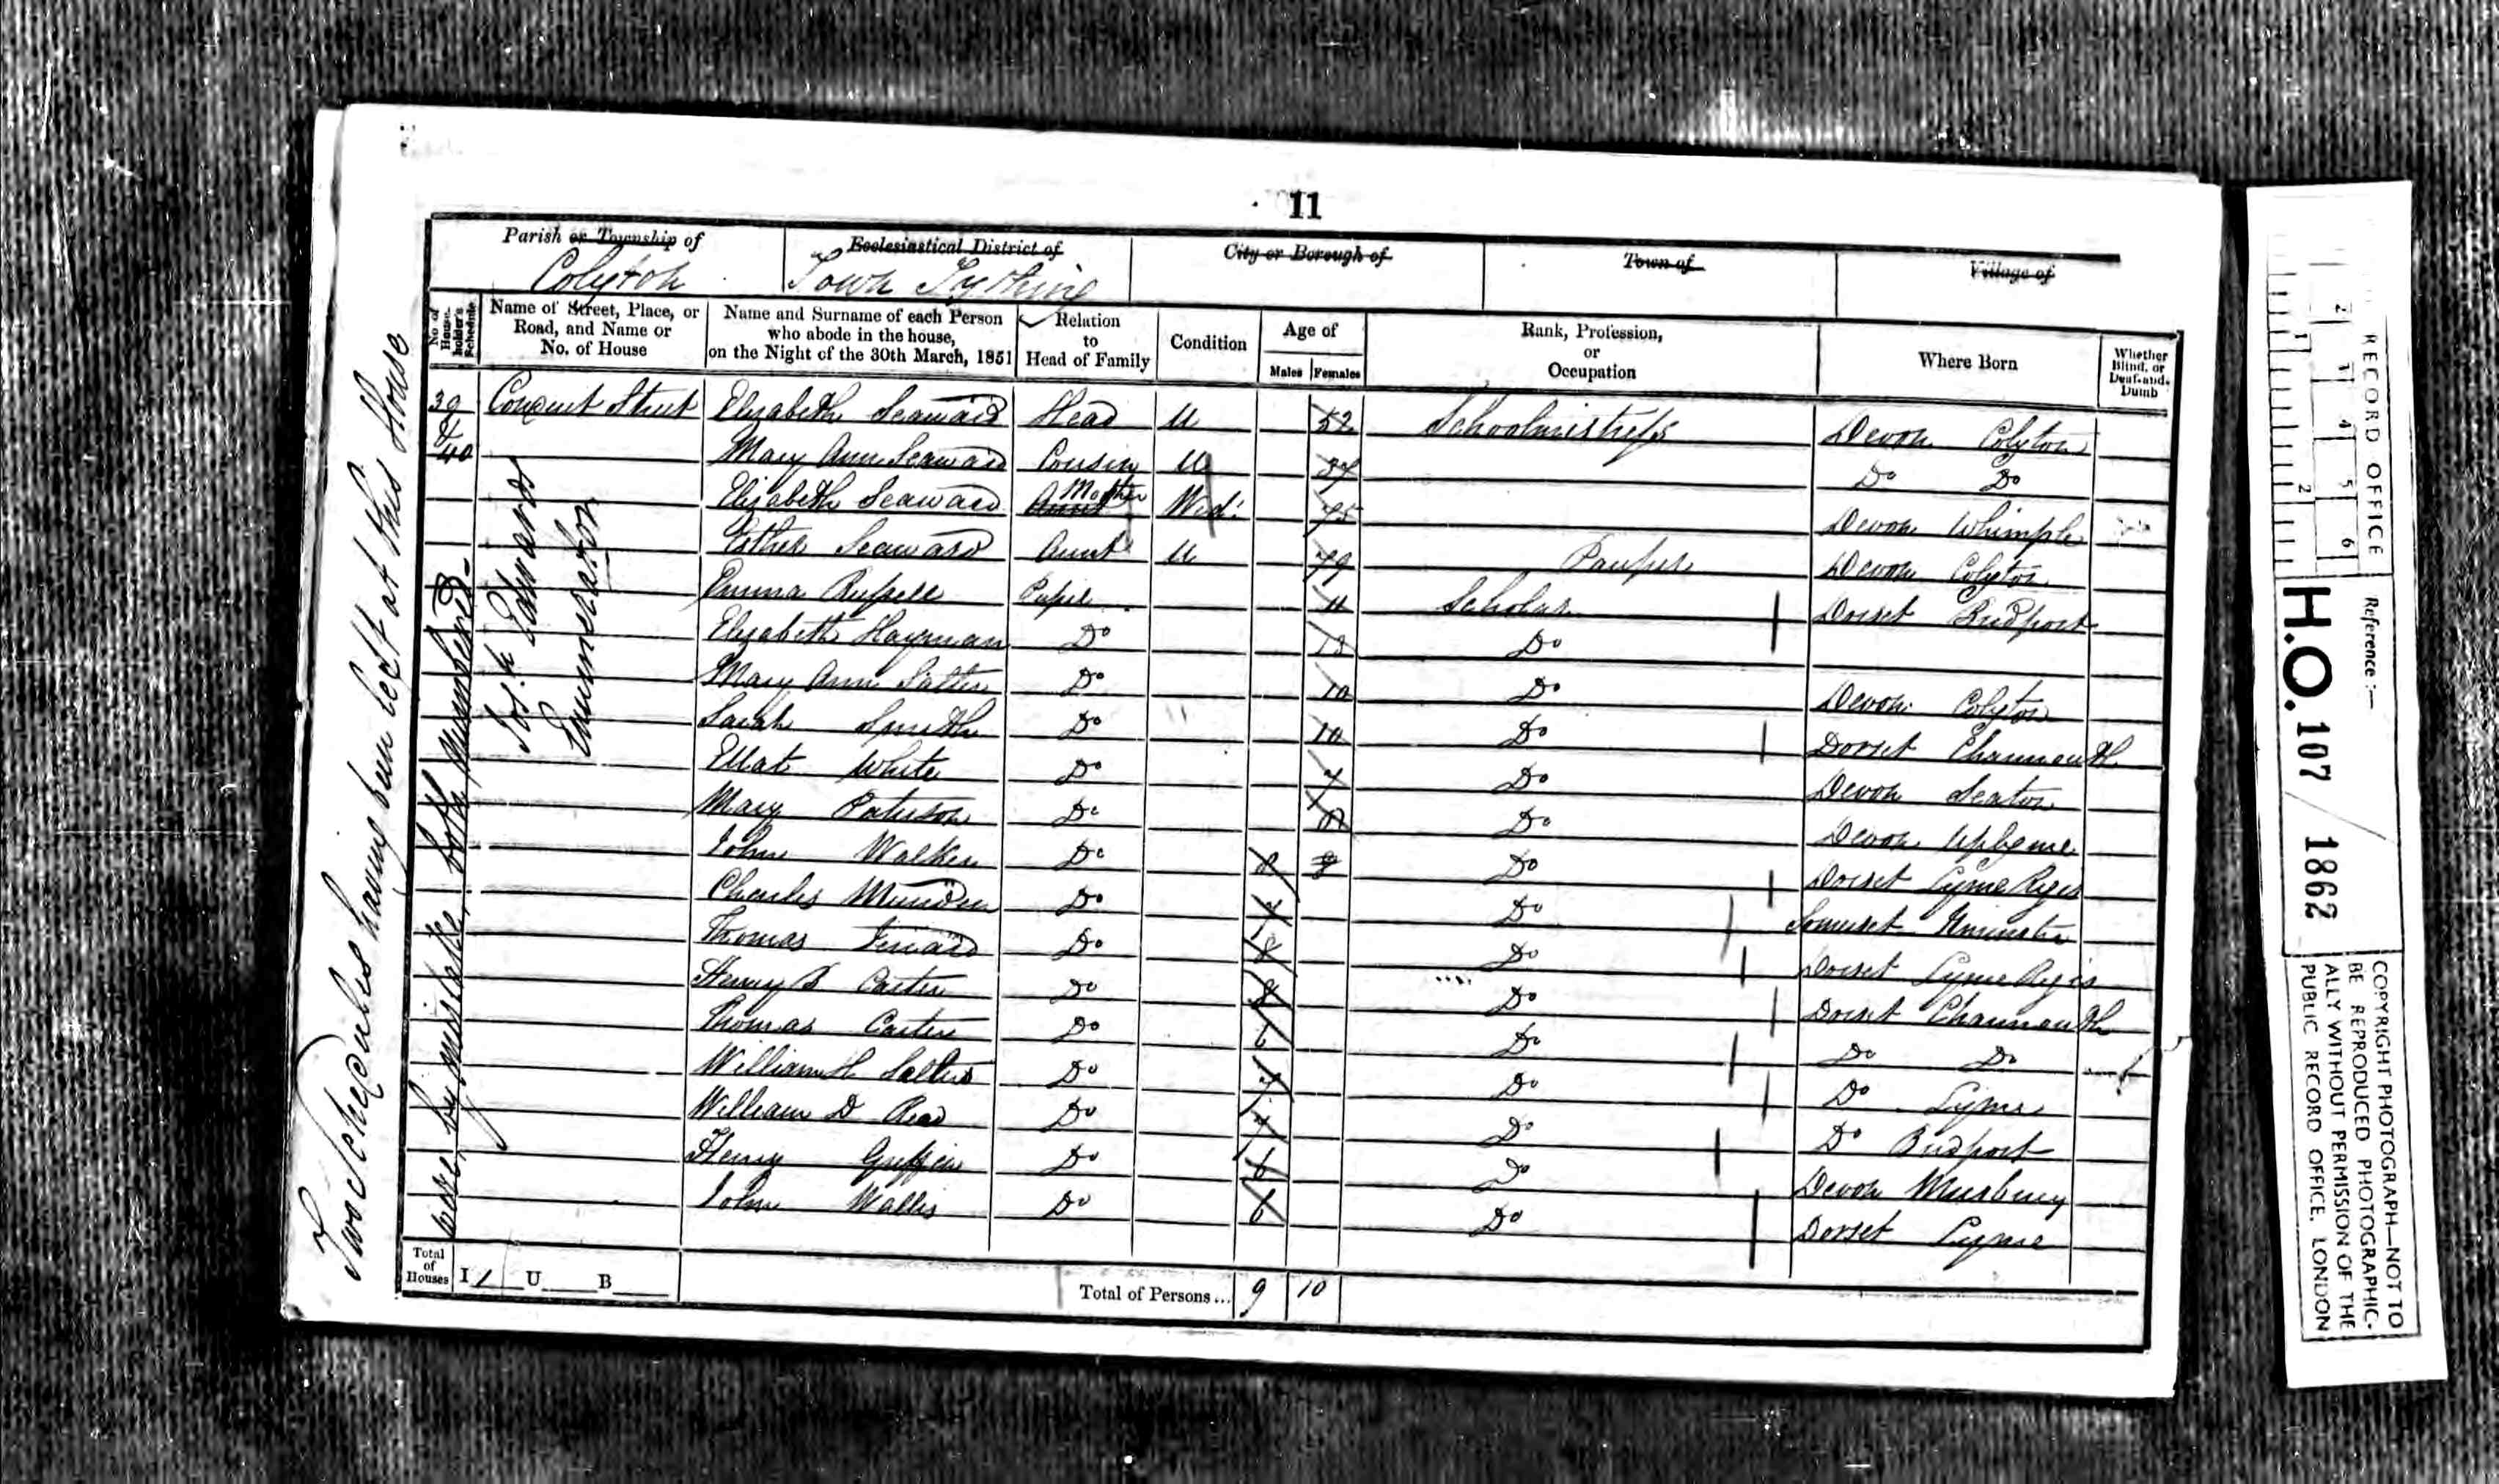 11
Parish or Township of
Colyton
Ecclesiastical District of
Town Tything
City or Borough of
Town of
Village of
No. of House-holder's Schedule
Name of Street, Place, or Road, and Name or No. of House
Name and Surname of each Person who abode in the house, on the Night of the 30th March, 1851
Relation to Head of Family
Condition
Age of
Males Females
Rank, Profession, or Occupation
Where Born
Whether Blind, or Deaf-and-Dumb
39 Street Elizabeth Seaward Head U 52 Schoolmistress Devon Colyton
& 40 Mary Ann Seaward Cousin U 37 Do Do
Elizabeth Seaward Aunt Mother Wid. 75 Devon Whimple
Esther Seaward Aunt U 79 Pauper Devon Colyton
Emma Russell Pupil 11 Scholar Dorset Bridport
Elizabeth Hayman Do 13 Do
Mary Ann Salter Do 10 Do Devon Colyton
Sarah Smith Do 10 Do Dorset Charmouth
White Do 7 Do Devon Seaton
Mary Paterson Do 10 Do Devon Uplyme
John Walker Do 8 8 Do Dorset Lyme Regis
Charles Munden Do 7 Do Somerset Ilminster
Thomas Do 8 Do Dorset Lyme Regis
Henry B Carter Do 8 Do Dorset Charmouth
Thomas Carter Do 6 Do Do Do
William H Salter Do 7 Do Do Lyme
William D Read Do 7 Do Do Bridport
Henry Griffin Do 6 Do Devon Musbury
John Wallis Do 6 Do Dorset Lyme
Josh Edwards
Enumerator
Two Schedules having been left at this House
were, by mistake, both numbered.
Total of Houses I 1 U B
Total of Persons... 9 10
RECORD OFFICE
Reference :—
H.O. 107 / 1862
COPYRIGHT PHOTOGRAPH—NOT TO
BE REPRODUCED PHOTOGRAPHIC-
ALLY WITHOUT PERMISSION OF THE
PUBLIC RECORD OFFICE, LONDON